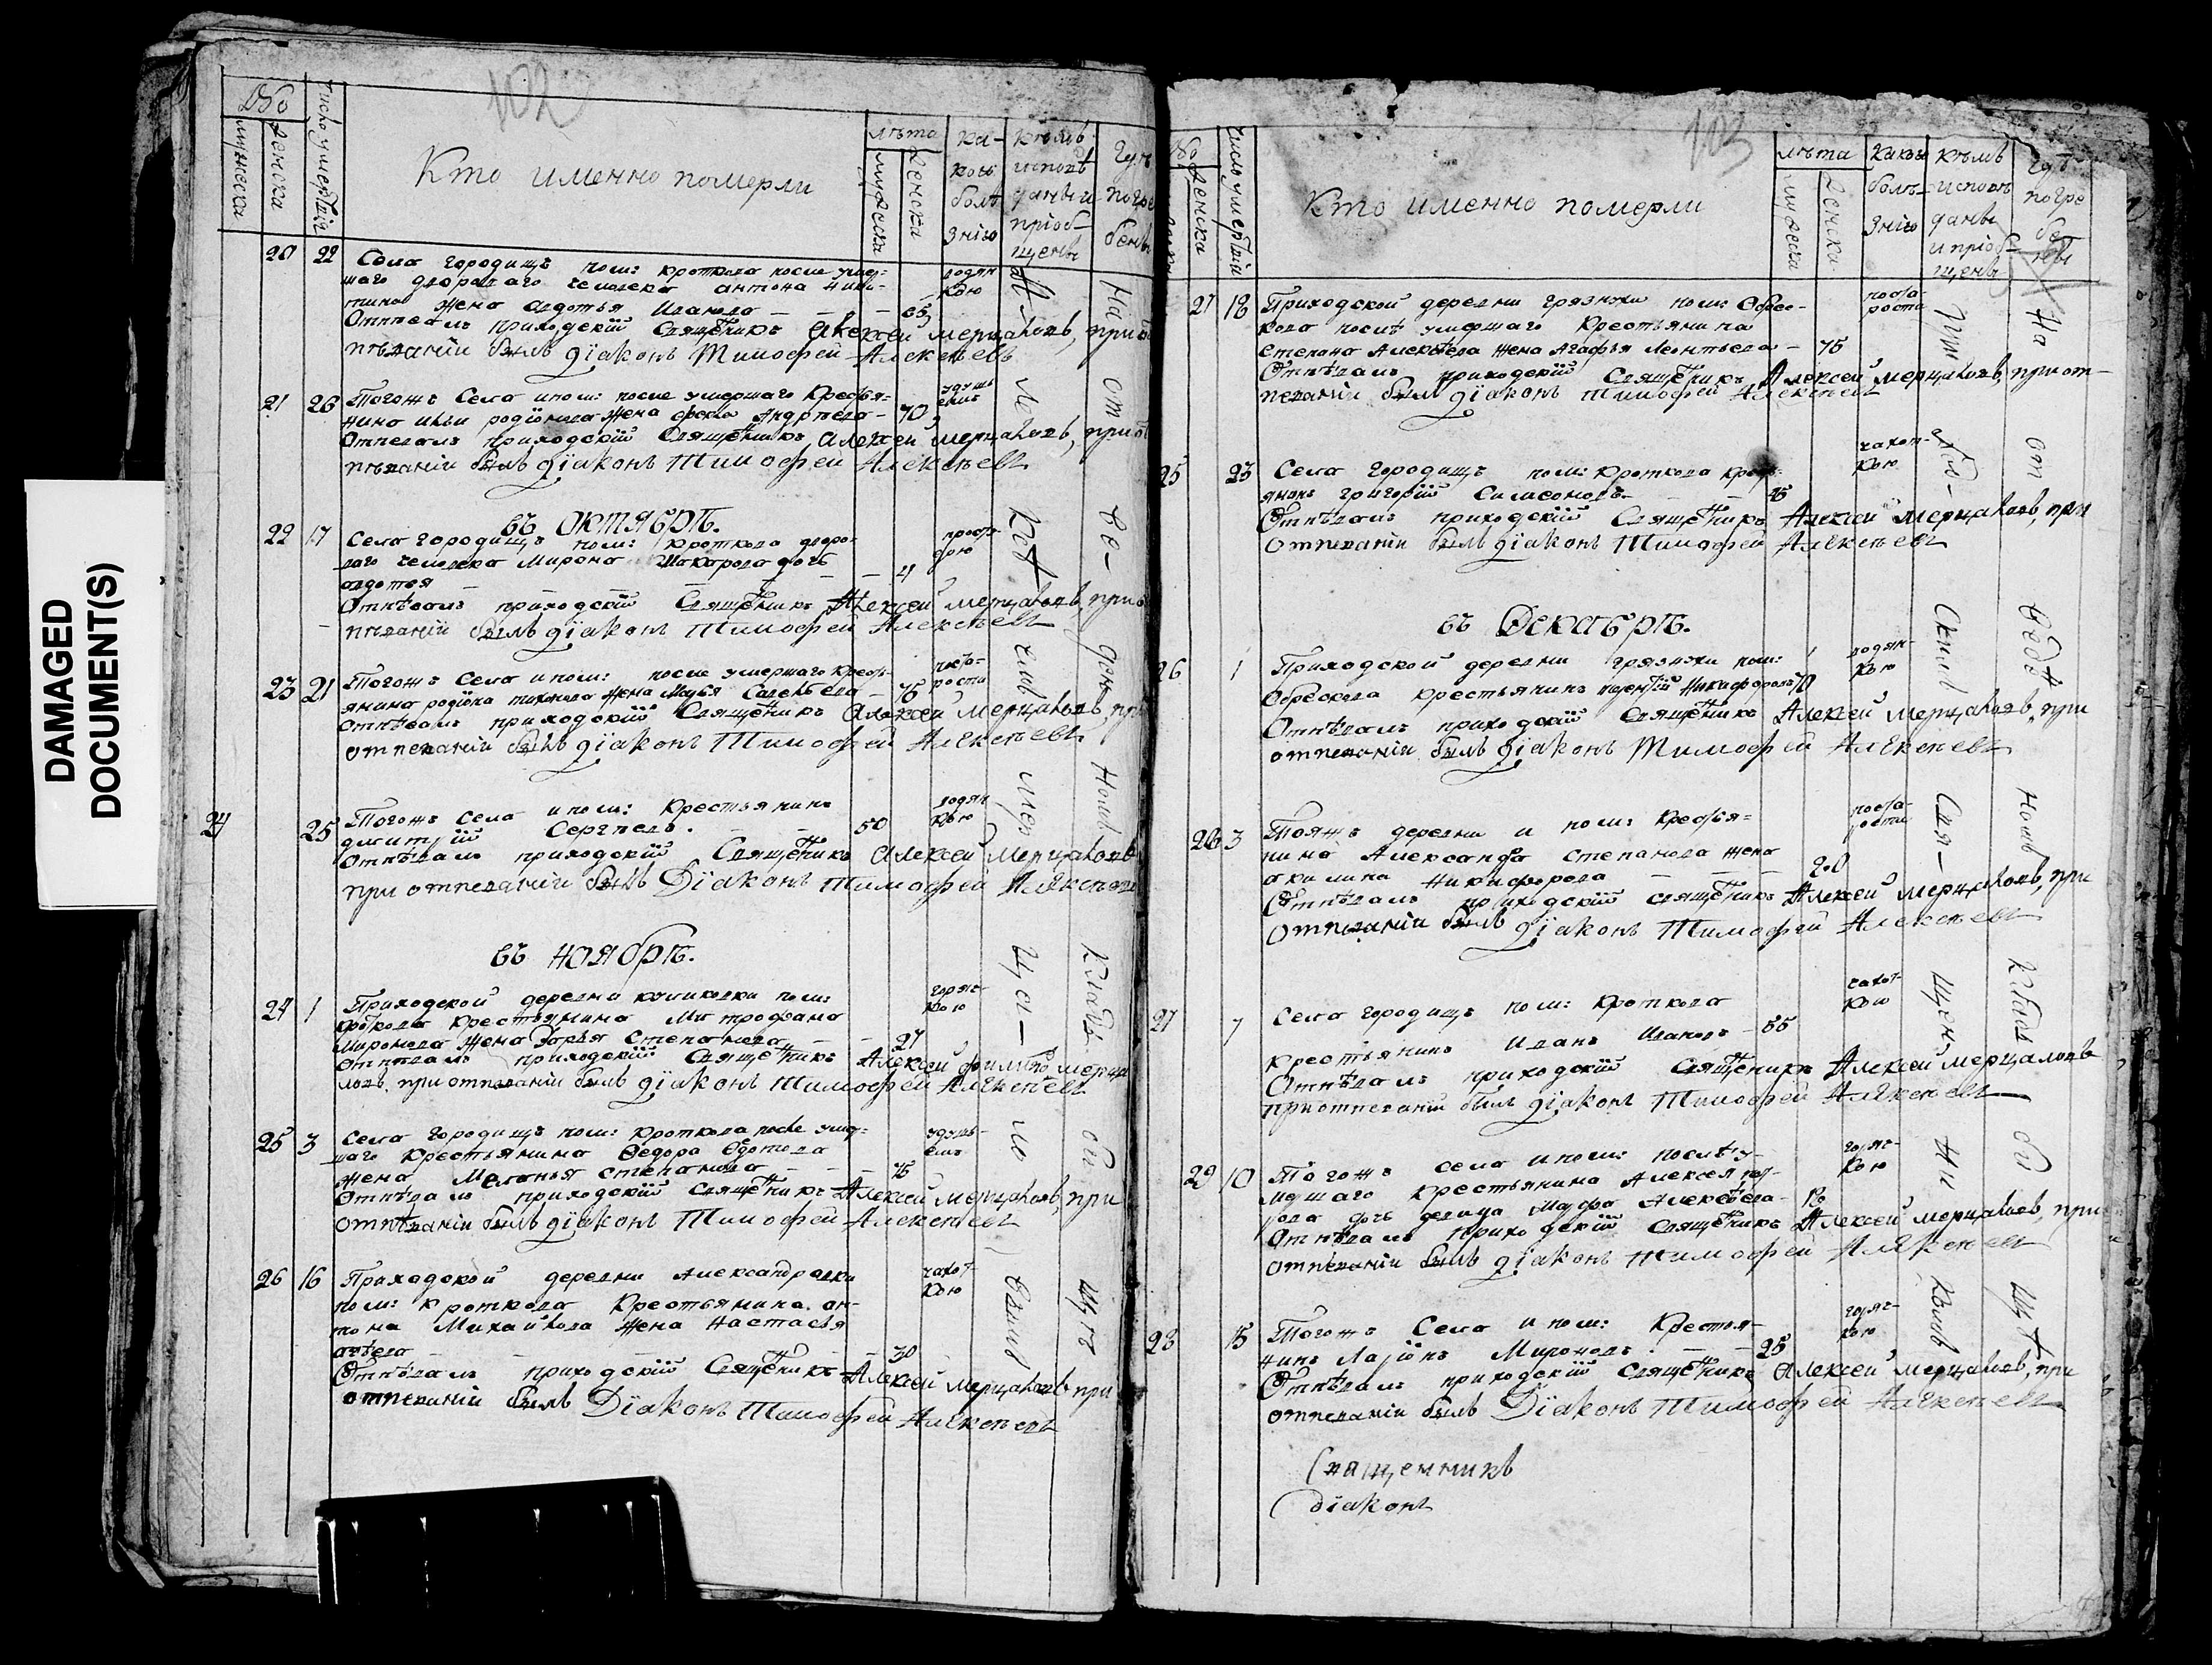 DAMAGED
DOCUMENT(S)
102
№
мужеска
женска
число умертвiй
Кто именно померли
лѣта
мужеска
женска
ка-
кою
болѣ
знiю
кѣмъ
исповѣ
даны и
прiоб-
щены
гдѣ
погре
бены
20 22 Села городищъ пом: кроткова после умер-
шаго двороваго человека антона ники-
тина жена авдотья Иванова 65
водян
кою
Отпевалъ приходскiй Священикъ Алексей мерцаловъ, при от
пѣванiи былъ дiаконъ Тимофей Алексѣевъ
21 26 Тогожъ Села и пом: после умершаго Кресья-
нина ильи родiонова жена фекла Андрѣева 70
удушь
емъ
Отпевалъ приходскiй Священикъ Алексей мерцаловъ, при от
пѣванiи былъ дiаконъ Тимофей Алексѣевъ
въ октябрѣ.
22 17 Села городищъ пом: кроткова дворо-
ваго человека Мирона Макарова дочь
авдотья 4
Отпѣвалъ приходскiй Священикъ Алексей мерцаловъ, при о
пѣванiи былъ дiаконъ Тимофей Алексѣевъ
23 21 Тогожъ Села и пом: после умершаго Кресть-
янина родiона жена Савельева 75
посta-
рости
Отпѣвалъ приходскiй Священикъ Алексей Мерцаловъ, при
отпеванiи былъ дiаконъ Тимофей Алексѣевъ
24 25 Тогожъ Села и пом: Крестьянинъ
дмитрiй Сергѣевъ. 50
водян
кою
Отпѣвалъ приходскiй Священикъ Алексей Мерцаловъ
при отпеванiи былъ Дiаконъ Тимофей Алексѣевъ
въ ноябрѣ.
24 1 Приходской деревни пом:
кроткова Крестьянина Митрофана
Миронова жена Дарья Степанова 27
горяч-
кою
Отпѣвалъ приходскiй Священикъ Алексей мерца
ловъ, при отпеванiи былъ дiаконъ Тимофей Алексѣевъ
25 3 Села городищъ пом: кроткова после умер-
шаго Крестьянина Ѳедора Ѳедотова
жена Меланья Степанова 75
удушь-
емъ
Отпѣвалъ приходскiй Священикъ Алексей мерцаловъ, при
отпѣванiи былъ дiаконъ Тимофей Алексѣевъ
26 16 Приходской деревни Александровки
пом: кроткова Крестьянина ан-
тона Михайлова жена Настасья
30
чахот-
кою
Отпѣвалъ приходскiй Священикъ Алексей мерцаловъ при
отпеванiи былъ Дiаконъ Тимофей Алексѣевъ
103
№
женска
число умертвiй
Кто именно померли
лѣта
мужеска
женска
какою
болѣ-
знiю
кѣмъ
исповѣ
даны
и прiоб-
щены
гдѣ
погре
бе-
ны
27 18 Приходской деревни грязнухи пом: Обрес-
кова послѣ умершаго Крестьянина
Степана Алексѣева жена Агафья Леонтьева 75
поста-
рости
Отпѣвалъ приходскiй Священикъ Алексей мерцаловъ, при от-
певанiи былъ дiаконъ Тимофей Алексѣевъ
25 23 Села городищъ пом: Кроткова кресть-
янинъ григорiй Симеоновъ 45
чахот-
кою
Отпѣвалъ приходскiй Священикъ Алексей мерцаловъ, при
отпеванiи былъ дiаконъ Тимофей Алексѣевъ
въ Декабрѣ.
26 1 Приходской деревни грязнухи пом:
Обрескова крестьянинъ Никифоровъ 70
водян-
кою
Отпѣвалъ приходскiй Священикъ Алексей Мерцаловъ, при
отпеванiи былъ дiаконъ Тимофей Алексѣевъ
28 3 Тояжъ деревни и пом: Кресья-
нина Александра Степанова жена
акилина Никифорова 20
Отпѣвалъ приходскiй священикъ Алексей мерцаловъ, при
отпеванiи былъ дiаконъ Тимофей Алексѣевъ
27 7 Села городищъ пом: Кроткова
крестьянинъ Иванъ Ивановъ 55
чахот-
кою
Отпѣвалъ приходскiй Священикъ Алексей мерцаловъ
при отпеванiи былъ дiаконъ Тимофей Алексѣевъ
29 10 Тогожъ села и пом: послѣ у-
мершаго крестьянина Алексея
дочь девица Марфа Алексѣева 18
горяч-
кою
Отпѣвалъ приходскiй Священикъ Алексей мерцаловъ, при
отпеванiи былъ дiаконъ Тимофей Алексѣевъ
28 15 Тогожъ Села и пом: Крестья-
нинъ Ларiонъ Мироновъ 25
горяч-
кою
Отпѣвалъ приходскiй Священикъ Алексей мерцаловъ, при
отпеванiи былъ Дiаконъ Тимофей Алексѣевъ
Священникъ
дiаконъ